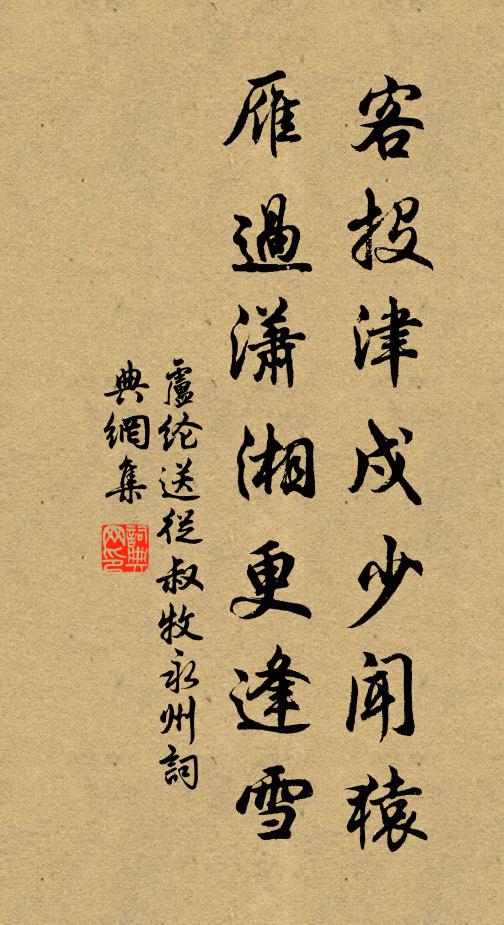 客投津戍少闻猿
雁過瀟湘更逢雪
盧纶送從叔牧永州詞
典網集
詞典網印